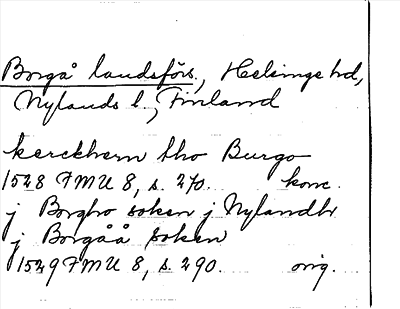 Borgå landsförs., Helsinge hd,
Nylands l., Finland
kerckhern tho Burgo
1528 FMU 8, s. 270. konc.
j Borgho soken j Nylandh
j Borgåå soken
1529 FMU 8, s. 290. orig.